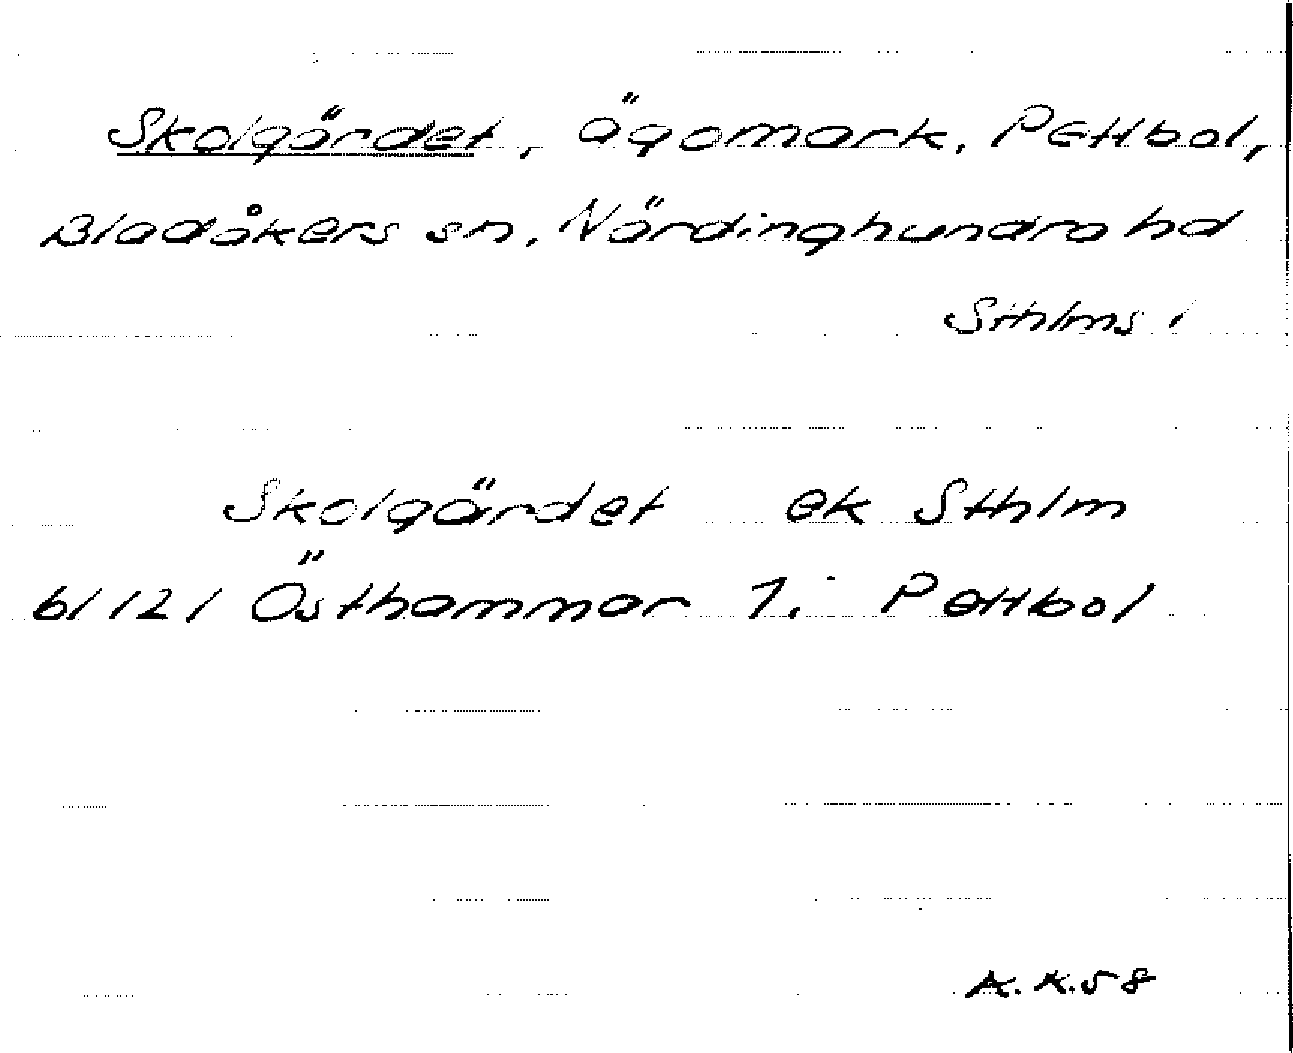 Skolgärdet, ägomark, Pettbol,
Bladåkers sn, Närdinghundra hd
Sthlms l
Skolgärdet ek Sthlm
bl 121 Östhammar 7i Pettbol
A.K.58